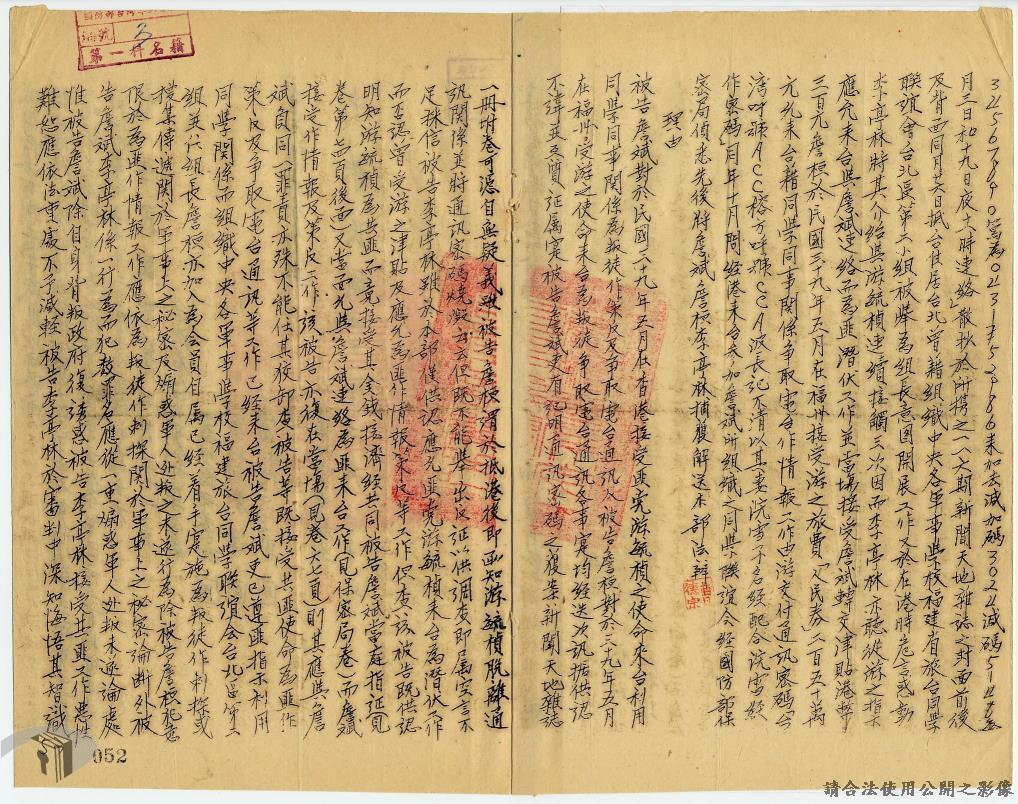 34567890為0231752986未加去減加碼3024減碼
月三日和十九日夜十一時連絡」散抄於所携之一八七期新聞天地雜誌之封面前後
及背面同月廿六日抵台住居台北曾藉組織中央各軍事學校福建省旅台同學
聯誼會台北區第二小組被舉為組長意图開展工作又於在港時危言惑動
李亭林將其介紹與游疏楨連續接觸三次因而李亭林亦聽從游之指示
應允來台與詹斌連絡而為匪潛伏工作並當場接受詹斌轉交津貼港幣
三百元詹楨於民國三十九年五月在福州接受游之旅費「人民券」二百五十萬
元允來台藉同學同事關係爭取電台作情報工作由游交付通訊密碼「台
灣呼號ACC榕方呼號CCA波長記不清以其妻阮雪子名經配合阮雪
作密碼」同年十月間經港來台参加詹斌所組織之同學聯誼会經國防部保
密局偵悉先後將詹斌詹楨李亭林捕獲解送本部法辦
理由
被告詹斌對於民國三十九年五月在香港接受匪宪游疏楨之使命來台利用
同學同事関係為叛徒作策反及爭取電台通訊又被告詹楨對於三十九年五月
在福州受游之使命來台為叛徒爭取電台通訊各事寔均經迭次訊據供認
不諱並互質証属寔被告詹斌更有記明通訊密碼之復案新聞天地雜誌
一冊附卷可憑自無疑義雖被告詹楨謂於抵港後即函知游疏楨脫離通
訊関係並將通訊密碼燒燬云云但既不能舉出反証以供調查即属空言不
足採信被告李亭林雖於本部僅供認應允匪宪游疏楨來台為潛伏工作
而否認曾受游之津貼及應允為匪作情報策反等工作但查該被告既供認
明知游疏楨為共匪而竟接受其金錢接濟經共同被告詹斌當庭指証(見
卷第七百頁後面)又當面允與詹斌連絡為匪來台工作(見保密局卷)而詹斌
接受作情報及策反工作該被告亦復在當場(見卷六七頁)則其應與詹
斌負同一罪責亦殊不能任其狡卸查被告等既接受共匪使命為匪作
策反及爭取電台通訊等工作已經來台被告詹斌更已遵匪指示利用
同學関係而組織中央各軍事學校福建旅台同學聯誼会台北區第二
組並任組長詹楨亦加入為会員自属已經着手寔施為叛徒作刺探或
搜集傳遞関於軍事上之秘密及煽惑軍人处叛之未遂行為除被告詹楨犯意
但於為匪作情報工作應依為叛徒作刺探関於軍事上之秘密論断外被
告詹斌李亭林係一行為而犯数罪名應從一重煽惑軍人处叛未遂論處
惟被告詹斌除自身背叛政府復誘惑被告李亭林接受共匪工作惡性
難恕應依法重處不予減輕被告李亭林於審判中深知悔悟其智識
編號
3
第一科名籍
052
請合法使用公開之影像